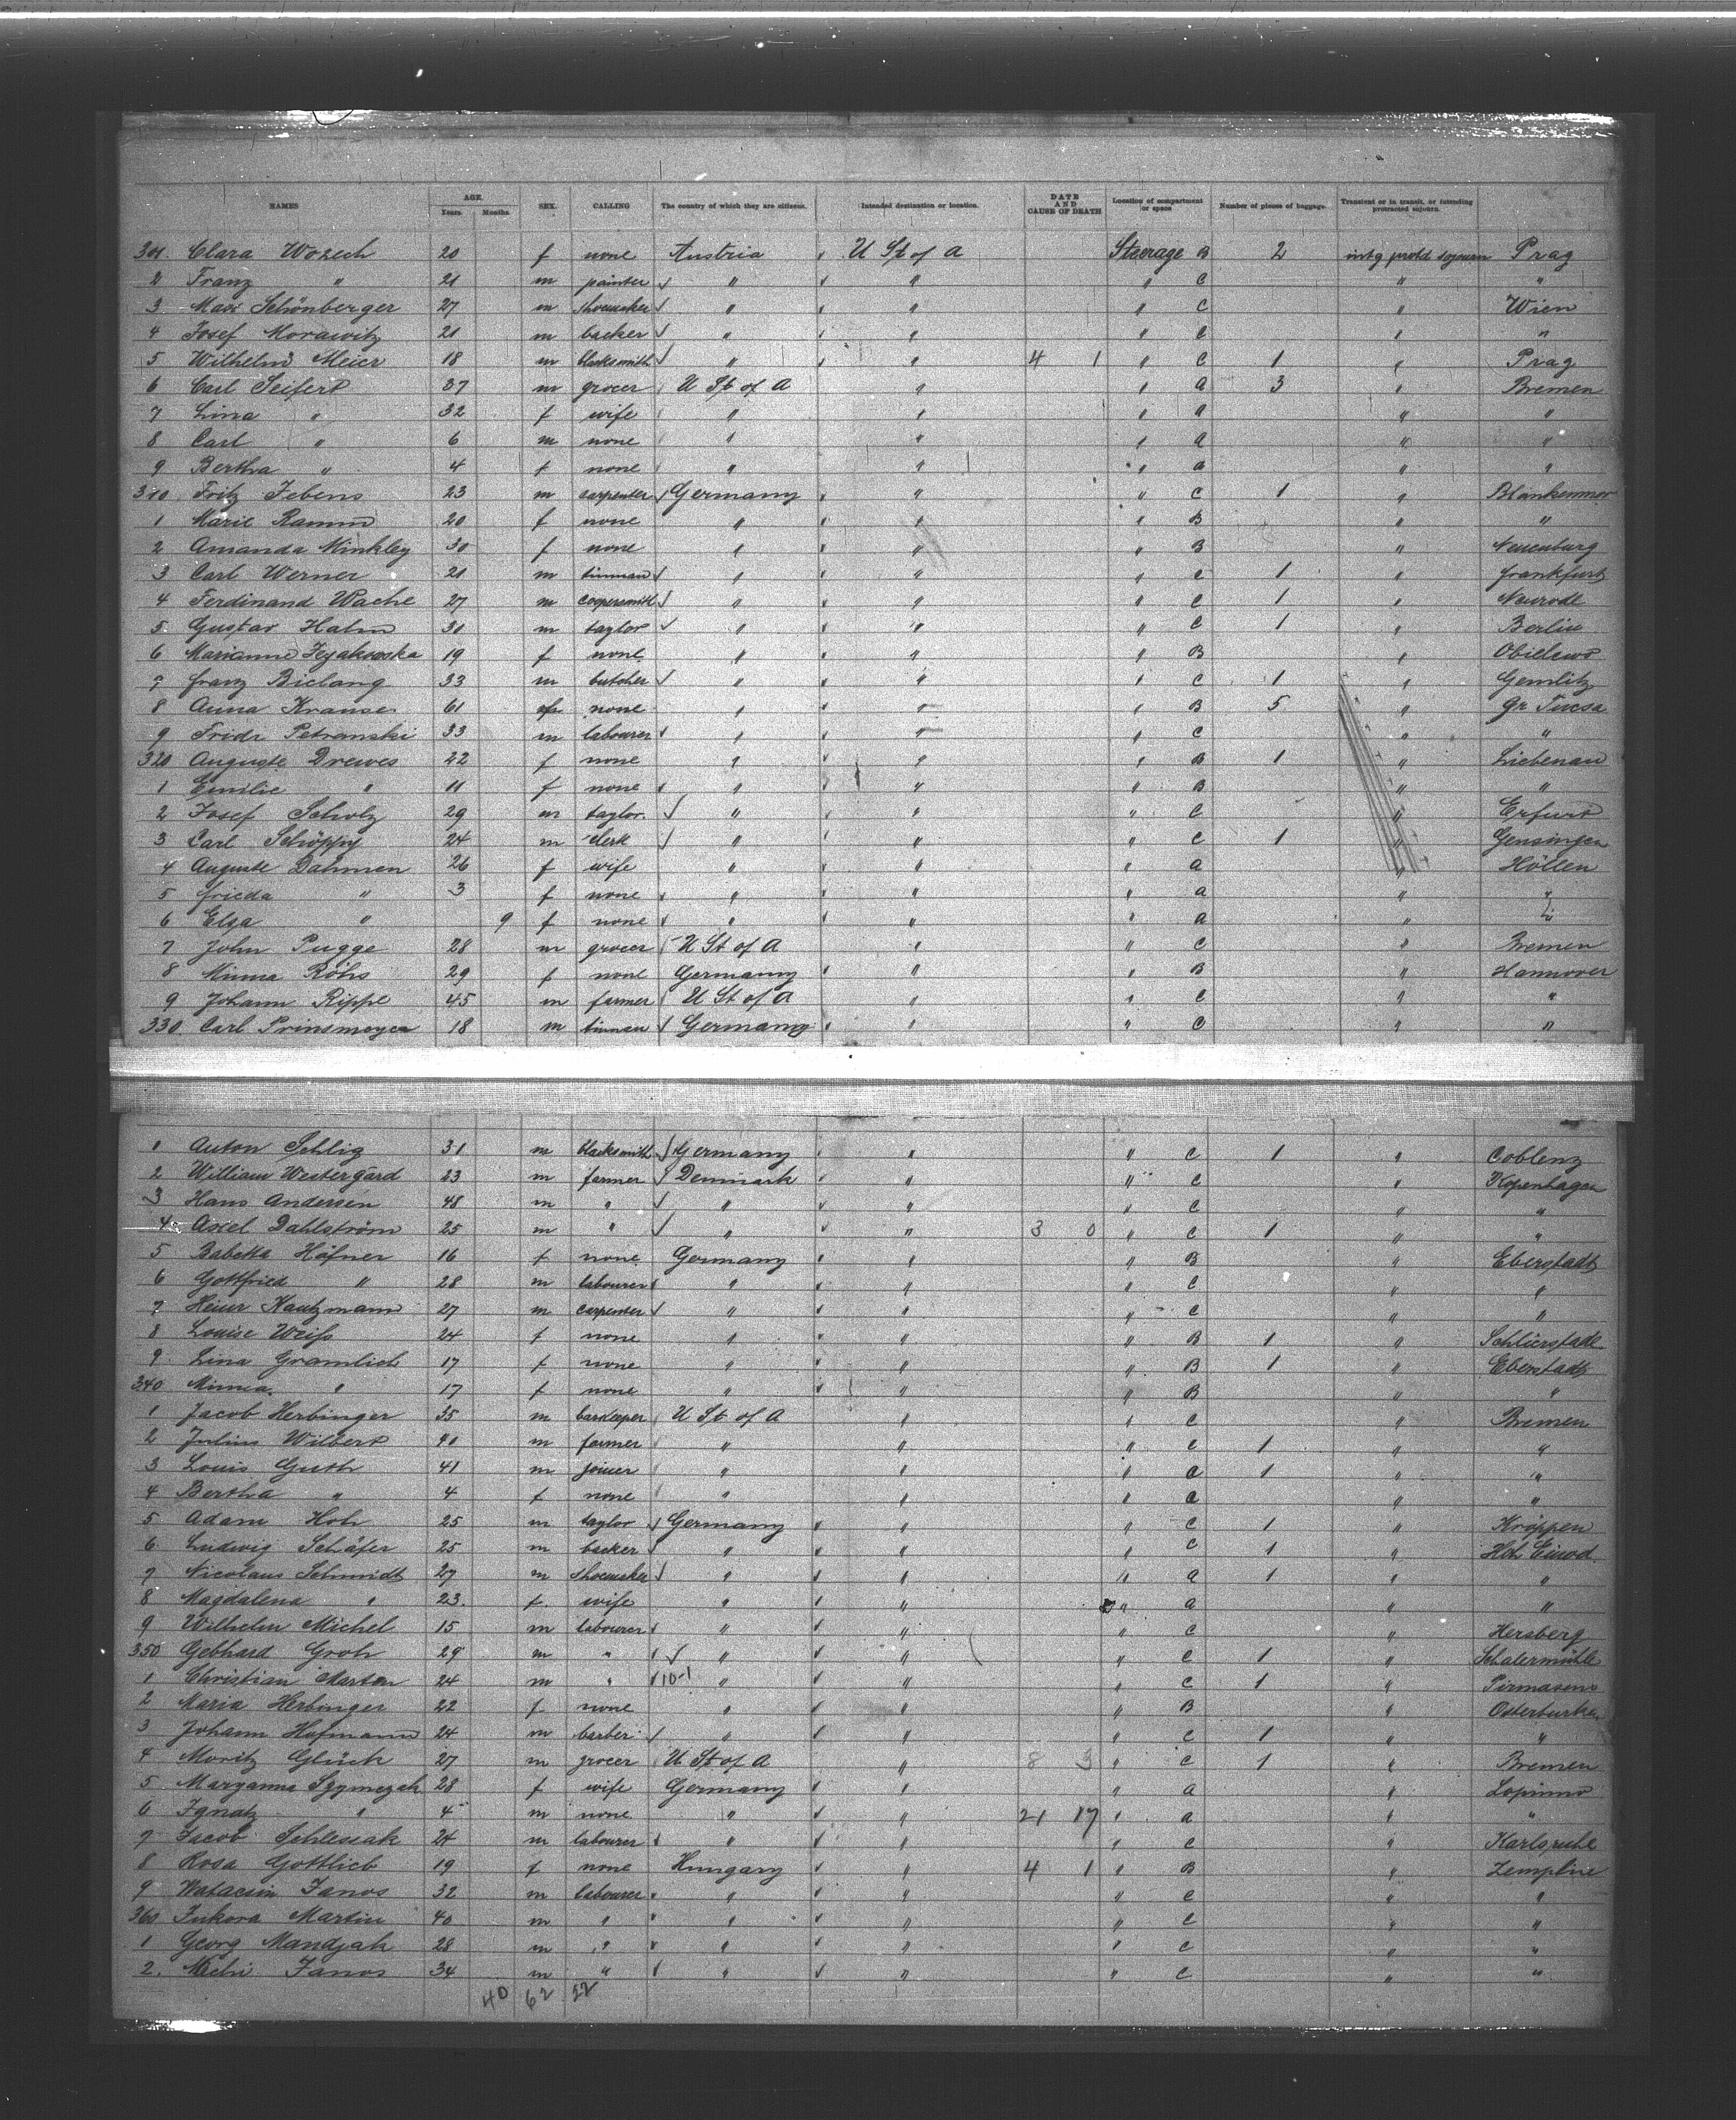 NAMES AGE. Years. Months. SEX. CALLING The country of which they are citizens. Intended destination or location. DATE AND CAUSE OF DEATH Location of compartment or space Number of pieces of baggage. Transient or in transit, or intending protracted sojourn.
301. Clara Wozech 20 f none Austria " U St of A Steerage B 2 intg protd sojourn Prag
2 Franz " 21 m painter " " " C " "
3 Max Schönberger 27 m shoemaker " " " C " Wien
4 Josef Morawitz 21 m backer " " " C " "
5 Wilhelm Meier 18 m blacksmith " " 4 1 " C 1 " Prag
6 Carl Seifert 37 m grocer U St of A " " a 3 " Bremen
7 Lina " 32 f wife " " " a " "
8 Carl " 6 m none " " " a " "
9 Bertha " 4 f none " " " a " "
310 Fritz Jebens 23 m carpenter Germany " " C 1 "
1 Marie Ramm 20 f none " " " B " "
2 Amanda Minkley 30 f none " " " B " Neuenburg
3 Carl Werner 21 m tinman " " " C 1 " Frankfurt
4 Ferdinand Wache 27 m coopersmith " " " C 1 " Neurode
5 Gustav Hahn 31 m taylor " " " C 1 " Berlin
6 Marianne 19 f none " " " B " Obielewo
7 Franz Bielang 33 m butcher " " " C 1 " Gemlitz
8 Anna Krause 61 f none " " " B 5 "
9 Fridr Petranski 33 m labourer " " " C " "
320 Auguste Drewes 42 f none " " " B 1 " Liebenau
1 Emilie " 11 f none " " " B " "
2 Josef Scholz 29 m taylor " " " C " Erfurt
3 Carl Schöppy 24 m clerk " " " C 1 " Gensingen
4 Auguste Dahmen 26 f wife " " " a " Höllen
5 Frieda " 3 f none " " " a " "
6 Elsa " 9 f none " " " a " "
7 John Pugge 28 m grocer U St of A " " C " Bremen
8 Minna Röhs 29 f none Germany " " B " Hannover
9 Johann Rippe 45 m farmer U St of A " " C " "
330 Carl Prinsmeyer 18 m tinman Germany " " C " "
1 Anton Schlig 31 m blacksmith Germany " " C 1 " Coblenz
2 William Westergård 23 m farmer Denmark " " C " Kopenhagen
3 Hans Andersen 48 m " " " " C " "
4 Axel Dahlström 25 m " " " 3 0 " C 1 " "
5 Babetta Häfner 16 f none Germany " " B " Eberstadt
6 Gottfried " 28 m labourer " " " C " "
7 Heinr Kautzmann 27 m carpenter " " " C " "
8 Louise Weiß 24 f none " " " B 1 "
9 Lina Gramlich 17 f none " " " B 1 " Eberstadt
340 Minna " 17 f none " " " B " "
1 Jacob Herbinger 35 m barkeeper U St of A " " C " Bremen
2 Julius Wilbert 40 m farmer " " " C 1 " "
3 Louis Guth 41 m joiner " " " a 1 " "
4 Bertha " 4 f none " " " a " "
5 Adam Hoh 25 m taylor Germany " " C 1 " Kröppen
6 Ludwig Schäfer 25 m backer " " " C 1 " Hoh Einod
7 Nicolaus Schmidt 27 m shoemaker " " " a 1 " "
8 Magdalena " 23 f. wife " " " a " "
9 Wilhelm Michel 15 m labourer " " " C " Hersberg
350 Gebhard Groh 29 m " " " " C 1 " Schalermühle
1 Christian Marton 24 m " 10-1 " " " C 1 " Pirmasens
2 Maria Herbinger 22 f none " " " B " Osterburken
3 Johann Hofmann 24 m barber " " " C 1 " "
4 Moritz Glück 27 m grocer U St of A " 8 3 " C 1 " Bremen
5 Maryanna Szymczak 28 f wife Germany " " a " Lopinno
6 Ignatz " 4 m none " " 21 17 " a " "
7 Jacob Schlessak 24 m labourer " " " C " Karlsruhe
8 Rosa Gottlieb 19 f none Hungary " 4 1 " B " Zempline
9 Watacsin Janos 32 m labourer " " " C " "
360 Fukora Martin 40 m " " " " C " "
1 Georg Mandjak 28 m " " " " C " "
2. Michi Janos 34 m " " " " C " "
40 62 22